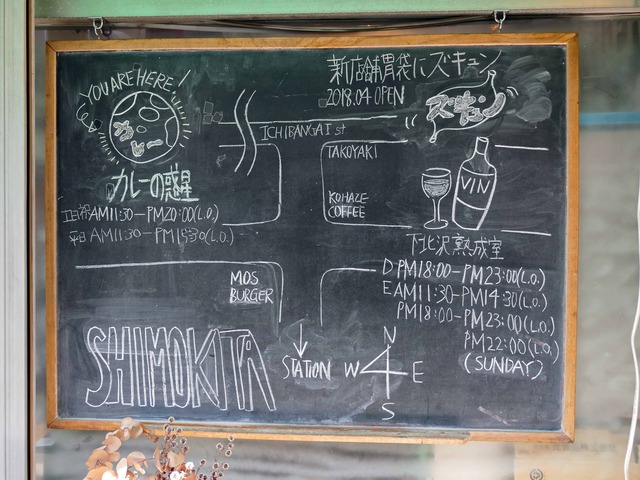 YOU ARE HERE!
カレー
カレーの惑星
土日祝AM11:30-PM20:00(L.O.)
平日 AM11:30-PM15:30(L.O.)
新店舗胃袋にズキュン
2018.04 OPEN
ズキュン
ICHIBANGAI st
TAKOYAKI
KOHAZE
COFFEE
VIN
下北沢熟成室
D PM18:00-PM23:00(L.O.)
E AM11:30-PM14:30(L.O.)
PM18:00-PM23:00(L.O.)
PM22:00(L.O.)
(SUNDAY)
MOS
BURGER
SHIMOKITA
STATION
N
W E
S